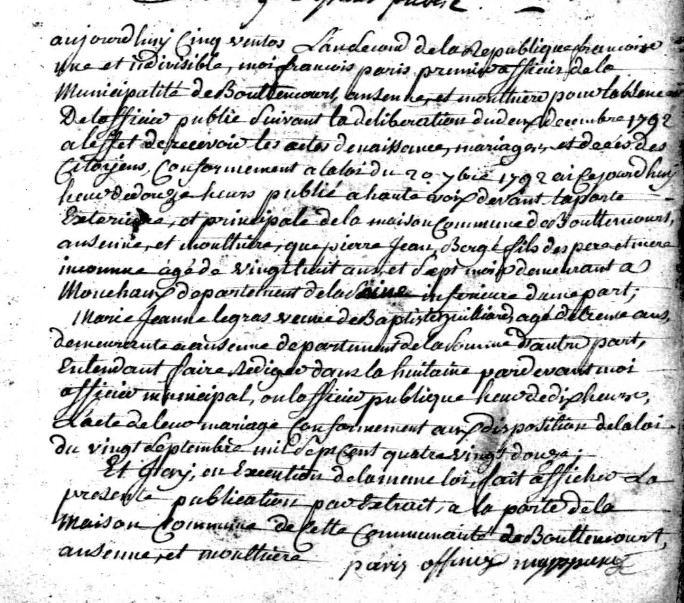 aujourdhuy Cinq ventos Lan second de la Republique francoise
une et indivisible, moi francois paris premier officier de la
Municipalité de Bouttencourt, ansenne, et monthiere pour labsence
De lofficier public Suivant la deliberation du deux decembre 1792
a leffet de recevoir les actes de naissance, mariages et deces des
Citoyens, Conformement a la loi du 20 7bre 1792 ai Cejourdhuy
heure de douze heurs publié a haute voix devant la porte
Exterieure, et principale de la maison Commune de Bouttencourt,
ansenne, et monthiere, que pierre Jean Bergé fils des pere et mere
inconnue agé de vingt huit ans et Sept mois demeurant a
Monchaux departement de la Seine inferieure dune part;
Marie Jeanne legras veuve de Baptiste agé de trente ans,
demeurante a ansenne departement de la Somme dautre part,
Entendant faire Rediger dans la huitaine pardevant moi
officier municipal, ou lofficier publique heure de dix heures,
Lacte de leur mariage Conformement aux disposition de la loi
du vingt Septembre mil Sept Cent quatre vingt douze;
Et Jay, en Execution de la meme loi, fait afficher La
presente publication par Extrait, a la porte de la
Maison Commune de Cette Communauté de Bouttencourt,
ansenne, et monthiere paris officier